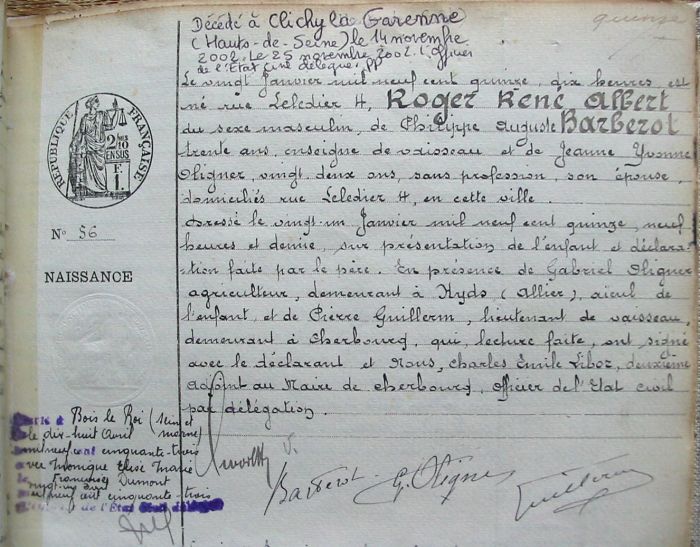 quinze
Décédé à Clichy la Garenne
(Hauts-de-Seine) le 14 novembre
2002. Le 25 novembre 2002. L'Officier
de l'Etat Civil délégué,
Le vingt Janvier mil neuf cent quinze, dix heures est
né rue Leledier 4, Roger René Albert
du sexe masculin, de Philippe Auguste Barberot
trente ans, enseigne de vaisseau et de Jeanne Yvonne
Oligner, vingt deux ans, sans profession, son épouse,
domiciliés rue Leledier 4, en cette ville.
Dressé le vingt-un Janvier mil neuf cent quinze, neuf
heures et demie, sur présentation de l'enfant et déclara-
-tion faite par le père. En présence de Gabriel Oligner
agriculteur, demeurant à Hyds (Allier), aïeul de
l'enfant, et de Pierre Guillerm, lieutenant de vaisseau,
demeurant à Cherbourg, qui, lecture faite, ont signé
avec le déclarant et Nous, Charles Emile Liboz, deuxième
adjoint au Maire de Cherbourg, Officier de l'Etat civil
par délégation.
RÉPUBLIQUE FRANÇAISE
2/10 EN SUS
F. 1.
N° 56
NAISSANCE
Marié à Bois le Roi (Seine et
le dix-huit Avril Marne)
mil neuf cent cinquante-trois
avec Monique Elise Marie
Françoise Dumont
mil neuf cent cinquante-trois
de l'Etat Civil délégué
Barberot G. Oligner Guillerm